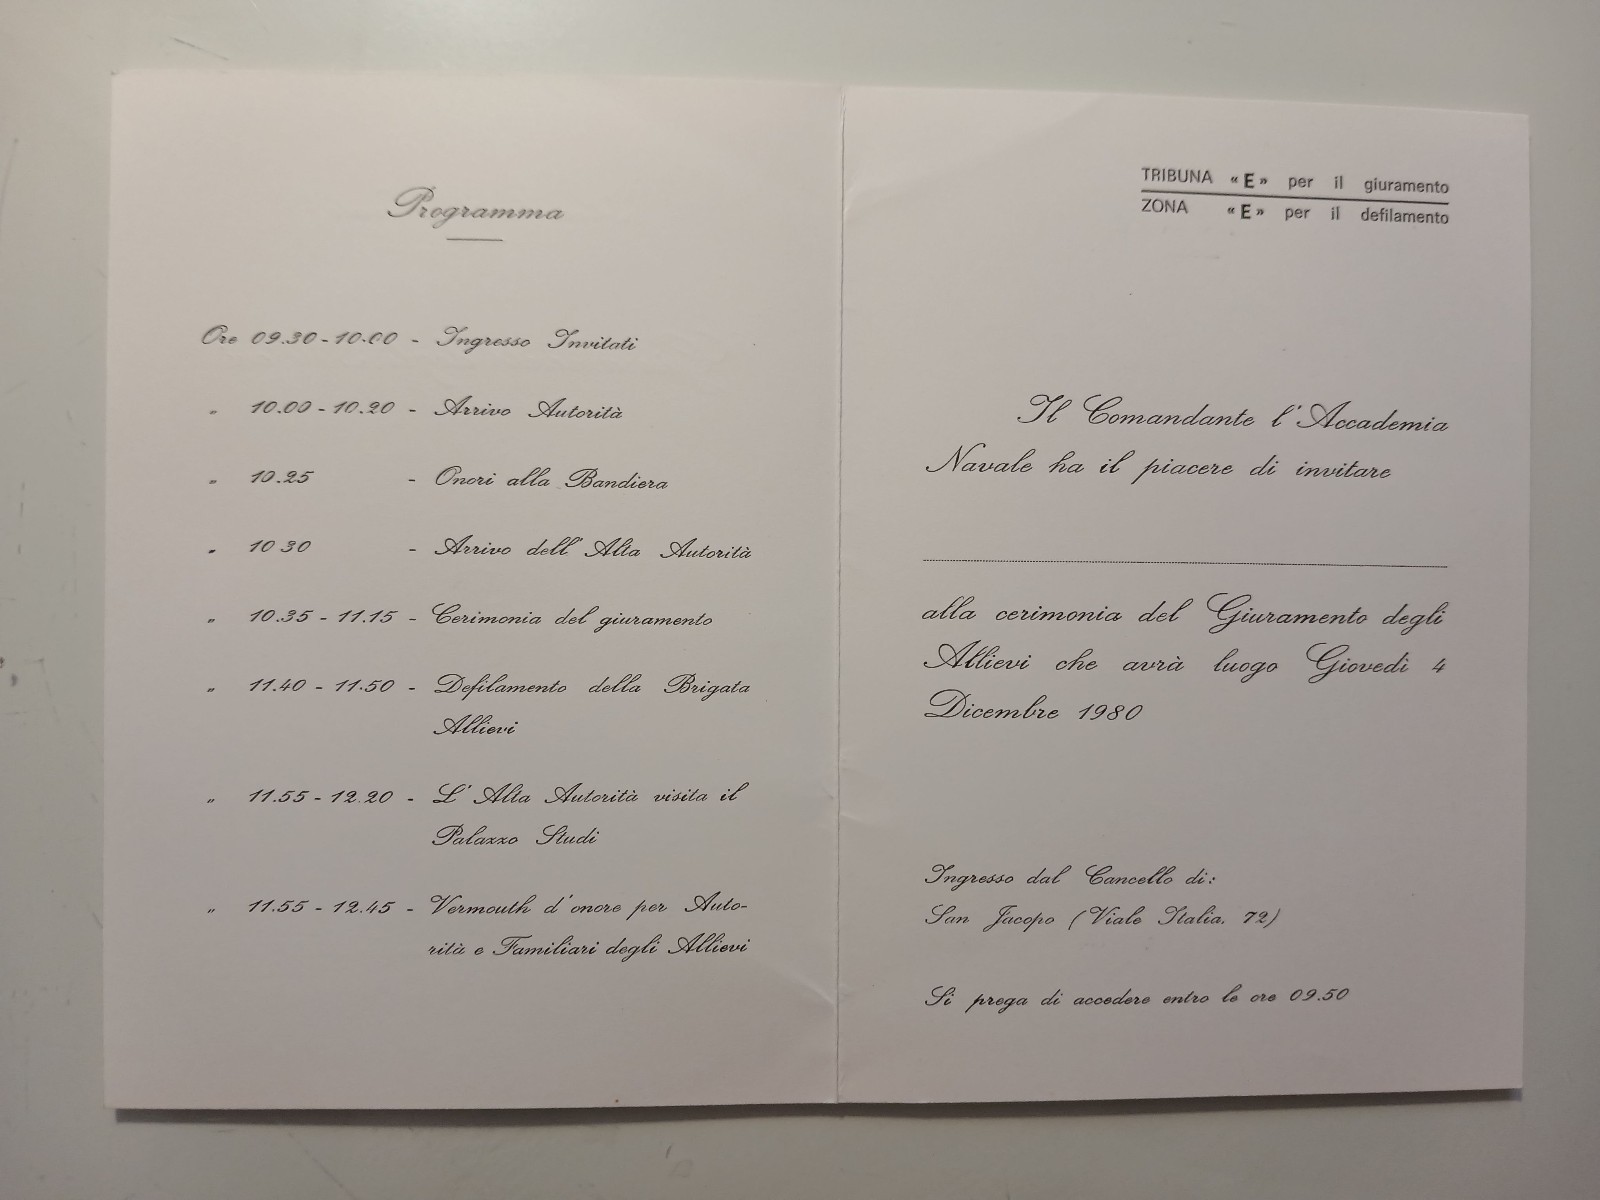 Programma
Ore 09.30 - 10.00 - Ingresso Invitati
„ 10.00 - 10.20 - Arrivo Autorità
„ 10.25 - Onori alla Bandiera
„ 10 30 - Arrivo dell' Alta Autorità
„ 10.35 - 11.15 - Cerimonia del giuramento
„ 11.40 - 11.50 - Defilamento della Brigata
Allievi
„ 11.55 - 12.20 - L' Alta Autorità visita il
Palazzo Studi
„ 11.55 - 12.45 - Vermouth d'onore per Auto-
rità e Familiari degli Allievi
TRIBUNA « E » per il giuramento
ZONA « E » per il defilamento
Il Comandante l'Accademia
Navale ha il piacere di invitare
alla cerimonia del Giuramento degli
Allievi che avrà luogo Giovedì 4
Dicembre 1980
Ingresso dal Cancello di:
San Jacopo (Viale Italia. 72)
Si prega di accedere entro le ore 09.50